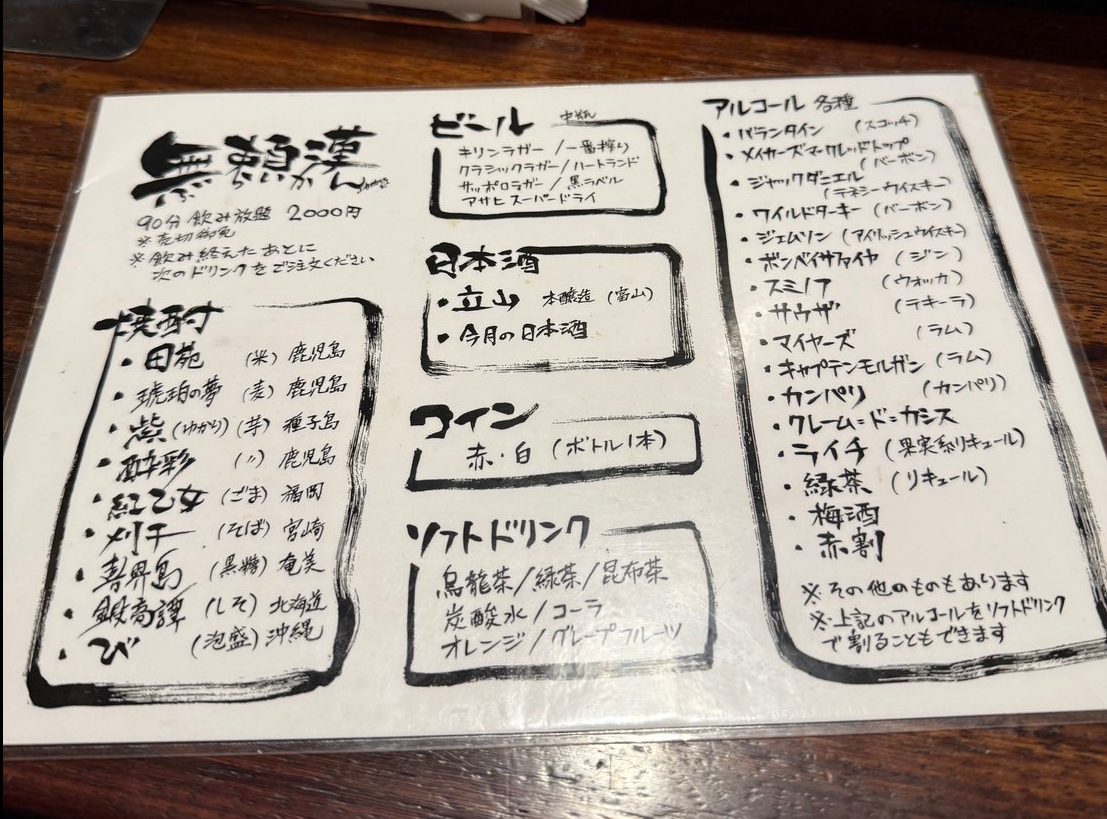 無頼漢
ぶらいかん
90分 飲み放題 2000円
※売切御免
※飲み終えたあとに
次のドリンクをご注文ください
焼酎
・田苑 (米) 鹿児島
・琥珀の夢 (麦) 鹿児島
・紫(ゆかり) (芋) 種子島
・酔彩 (〃) 鹿児島
・紅乙女 (ごま) 福岡
・刈干 (そば) 宮崎
・喜界島 (黒糖) 奄美
・鍛高譚 (しそ) 北海道
・び (泡盛) 沖縄
ビール 中瓶
キリンラガー/一番搾り
クラシックラガー/ハートランド
サッポロラガー/黒ラベル
アサヒスーパードライ
日本酒
・立山 本醸造 (富山)
・今月の日本酒
ワイン
赤・白 (ボトル1本)
ソフトドリンク
烏龍茶/緑茶/昆布茶
炭酸水/コーラ
オレンジ/グレープフルーツ
アルコール 各種
・バランタイン (スコッチ)
・メイカーズマークレッドトップ
(バーボン)
・ジャックダニエル
(テネシーウイスキー)
・ワイルドターキー (バーボン)
・ジェムソン (アイリッシュウイスキー)
・ボンベイサファイヤ (ジン)
・スミノフ (ウォッカ)
・サウザ (テキーラ)
・マイヤーズ (ラム)
・キャプテンモルガン (ラム)
・カンパリ (カンパリ)
・クレーム=ド=カシス
・ライチ (果実系リキュール)
・緑茶 (リキュール)
・梅酒
・赤割
※その他のものもあります
※上記のアルコールをソフトドリンク
で割ることもできます